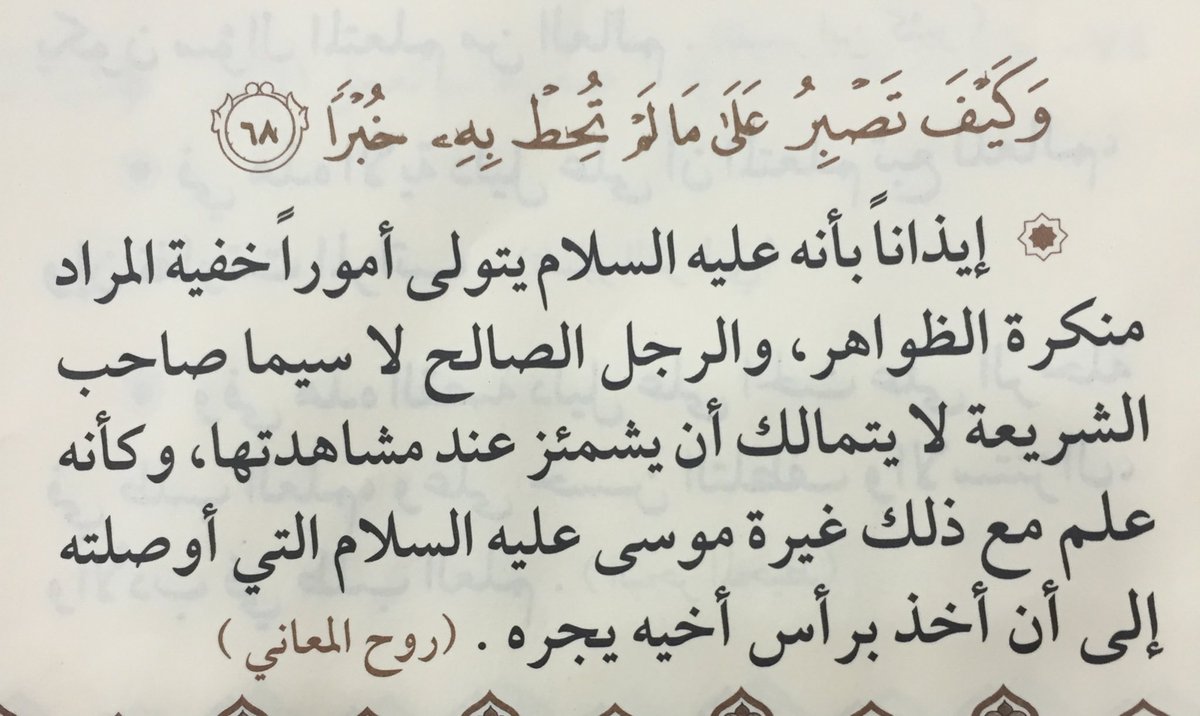 وَكَيْفَ تَصْبِرُ عَلَىٰ مَا لَمْ تُحِطْ بِهِۦ خُبْرًا ٦٨
إيذاناً بأنه عليه السلام يتولى أموراً خفية المراد
منكرة الظواهر، والرجل الصالح لا سيما صاحب
الشريعة لا يتمالك أن يشمئز عند مشاهدتها، وكأنه
علم مع ذلك غيرة موسى عليه السلام التي أوصلته
إلى أن أخذ برأس أخيه يجره . (روح المعاني)